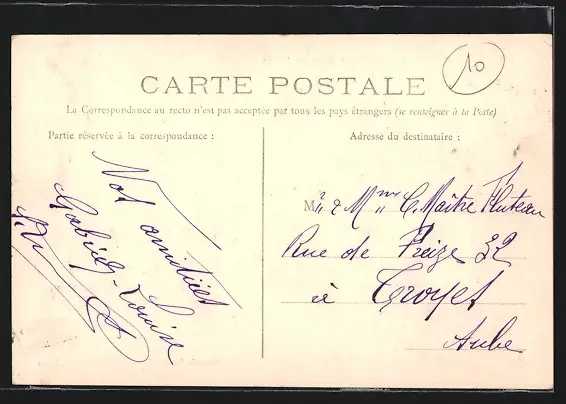 10
CARTE POSTALE
La Correspondance au recto n'est pas acceptée par tous les pays étrangers (se renseigner à la Poste)
Partie réservée à la correspondance :
Adresse du destinataire :
Nos amitiés
Gabriel Louise
Mr & Mme C. Maître Fluteau
Rue de Preize 32
à Troyes
Aube